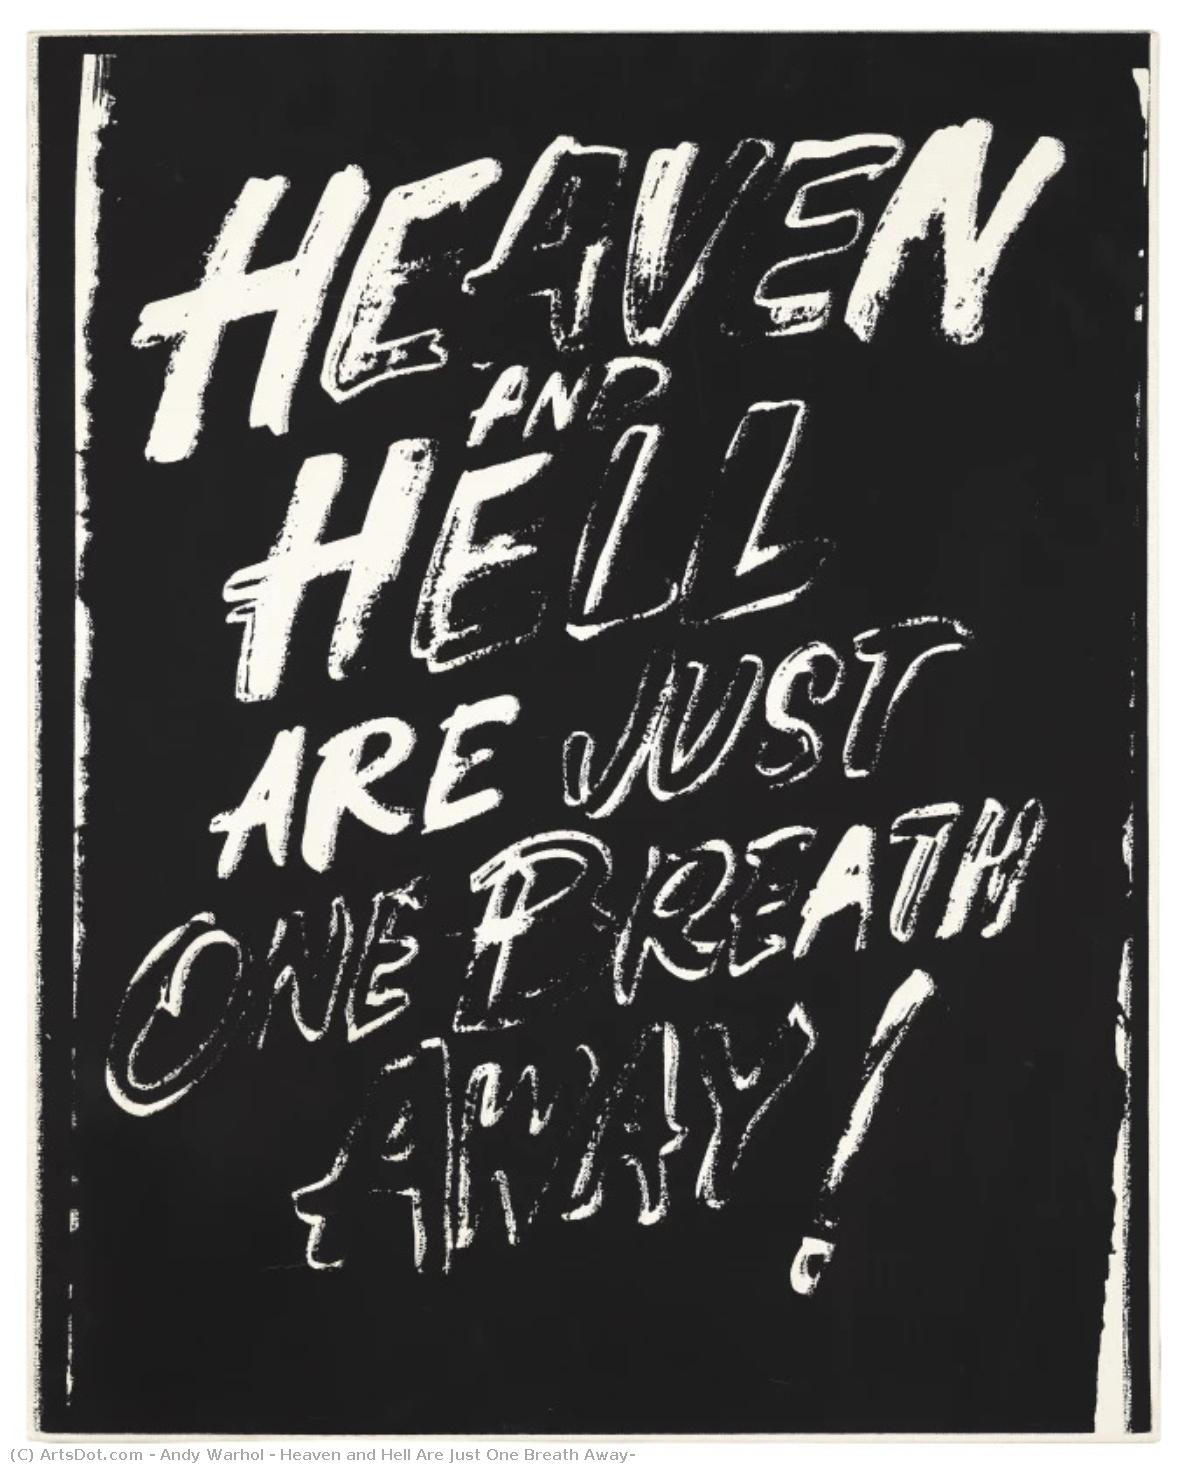 HEAVEN
AND
HELL
ARE JUST
ONE BREATH
AWAY!
(C) ArtsDot.com - Andy Warhol - Heaven and Hell Are Just One Breath Away-